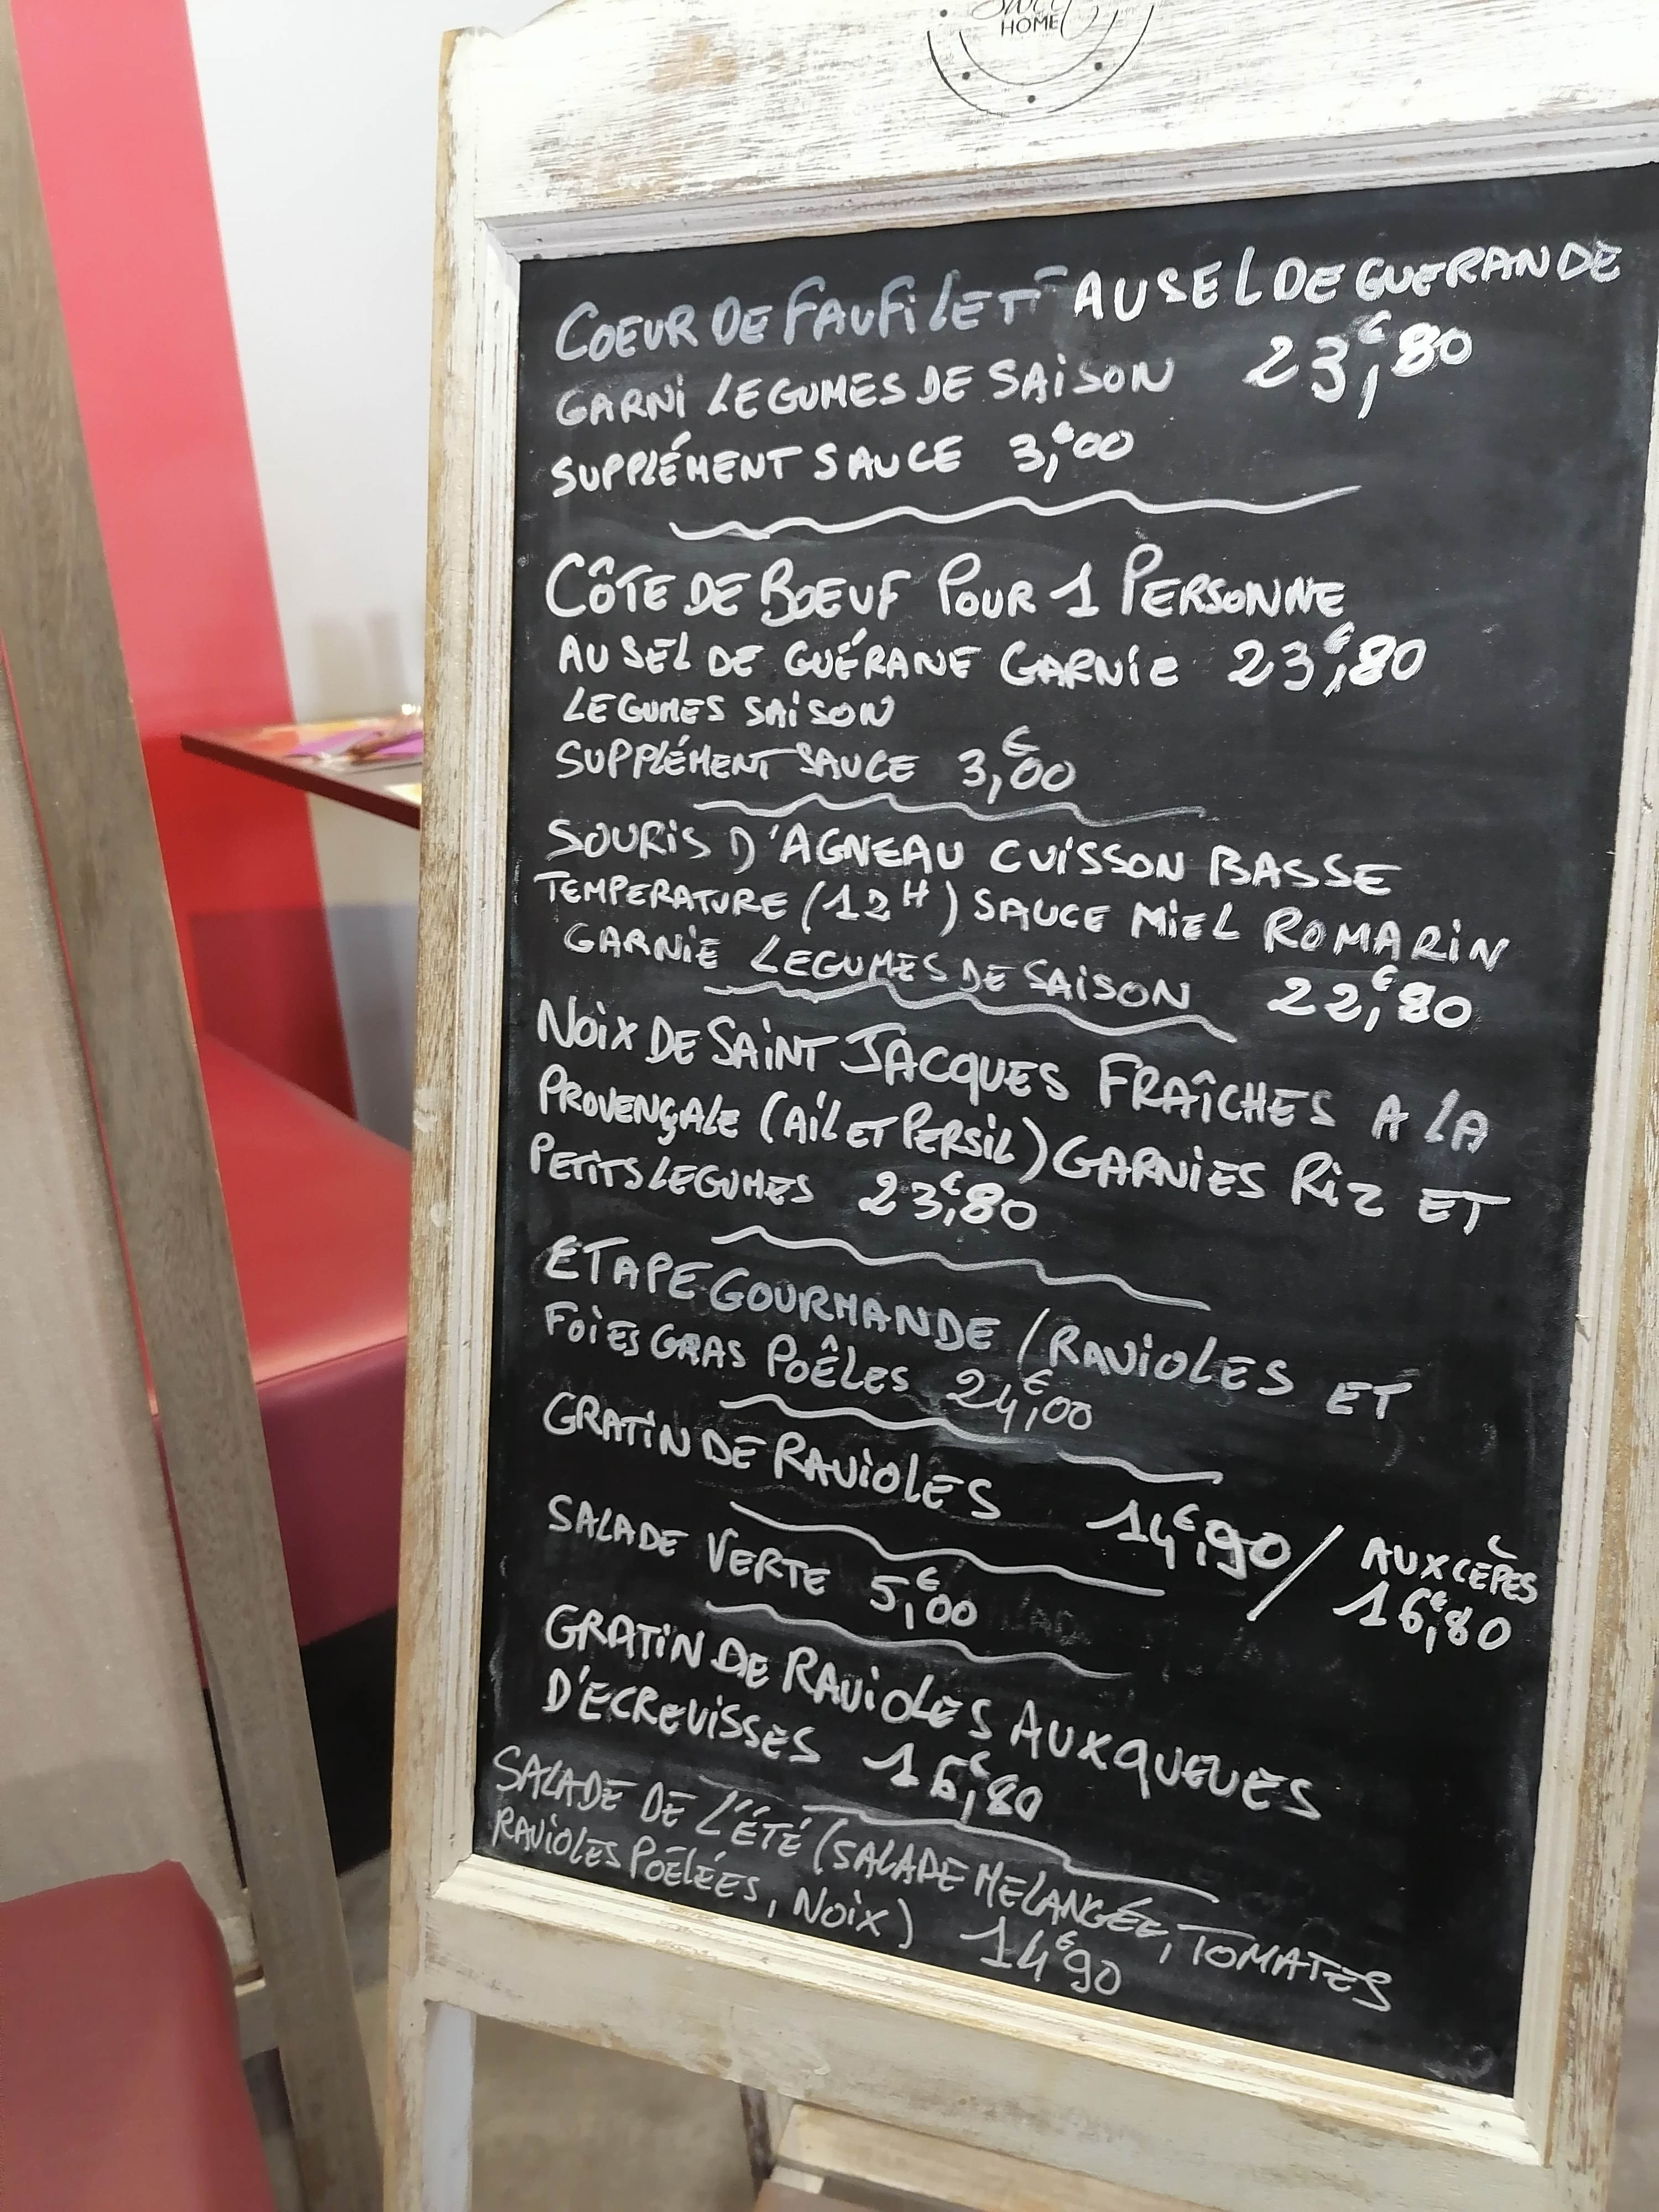 HOME
COEUR DE FAUFILET AU SEL DE GUERANDE
GARNI LEGUMES DE SAISON 23,€80
SUPPLÉMENT SAUCE 3,€00
CÔTE DE BOEUF POUR 1 PERSONNE
AU SEL DE GUÉRANE GARNIE 23,€80
LEGUMES SAISON
SUPPLÉMENT SAUCE 3,€00
SOURIS D'AGNEAU CUISSON BASSE
TEMPERATURE (12H) SAUCE MIEL ROMARIN
GARNIE LEGUMES DE SAISON 22,€80
NOIX DE SAINT JACQUES FRAÎCHES A LA
PROVENÇALE (AIL ET PERSIL) GARNIES RIZ ET
PETITS LEGUMES 23,€80
ETAPE GOURMANDE / RAVIOLES ET
FOIES GRAS POÊLES 24,€00
GRATIN DE RAVIOLES 14,€90 / AUX CÈPES
16,€80
SALADE VERTE 5,€00
GRATIN DE RAVIOLES AUX QUEUES
D'ECREVISSES 16,€80
SALADE DE L'ÉTÉ (SALADE MELANGÉE, TOMATES
RAVIOLES POÊLÉES, NOIX) 14€90